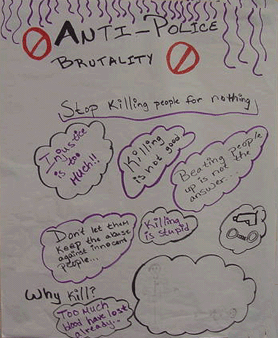 ANTI-POLICE
BRUTALITY
Stop Killing people for nothing
Injustice
is too
Much!!
Killing
is not good
Beating People
up is not the
answer...
Don't let them
Keep the abuse
against innocent
people...
Killing
is stupid
Why Kill?
Too Much
blood have lost
already...